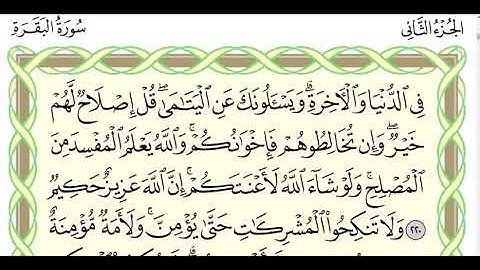 الجُزْءُ الثَّانِي
سُورَةُ البَقَرَةِ
فِي الدُّنْيَا وَالْآخِرَةِ ۗ وَيَسْـَٔلُونَكَ عَنِ الْيَتَامَىٰ ۖ قُلْ إِصْلَاحٌ لَّهُمْ
خَيْرٌ ۖ وَإِن تُخَالِطُوهُمْ فَإِخْوَانُكُمْ ۚ وَاللَّهُ يَعْلَمُ الْمُفْسِدَ مِنَ
الْمُصْلِحِ ۚ وَلَوْ شَاءَ اللَّهُ لَأَعْنَتَكُمْ ۚ إِنَّ اللَّهَ عَزِيزٌ حَكِيمٌ
٢٢٠ وَلَا تَنكِحُوا الْمُشْرِكَاتِ حَتَّىٰ يُؤْمِنَّ ۚ وَلَأَمَةٌ مُّؤْمِنَةٌ